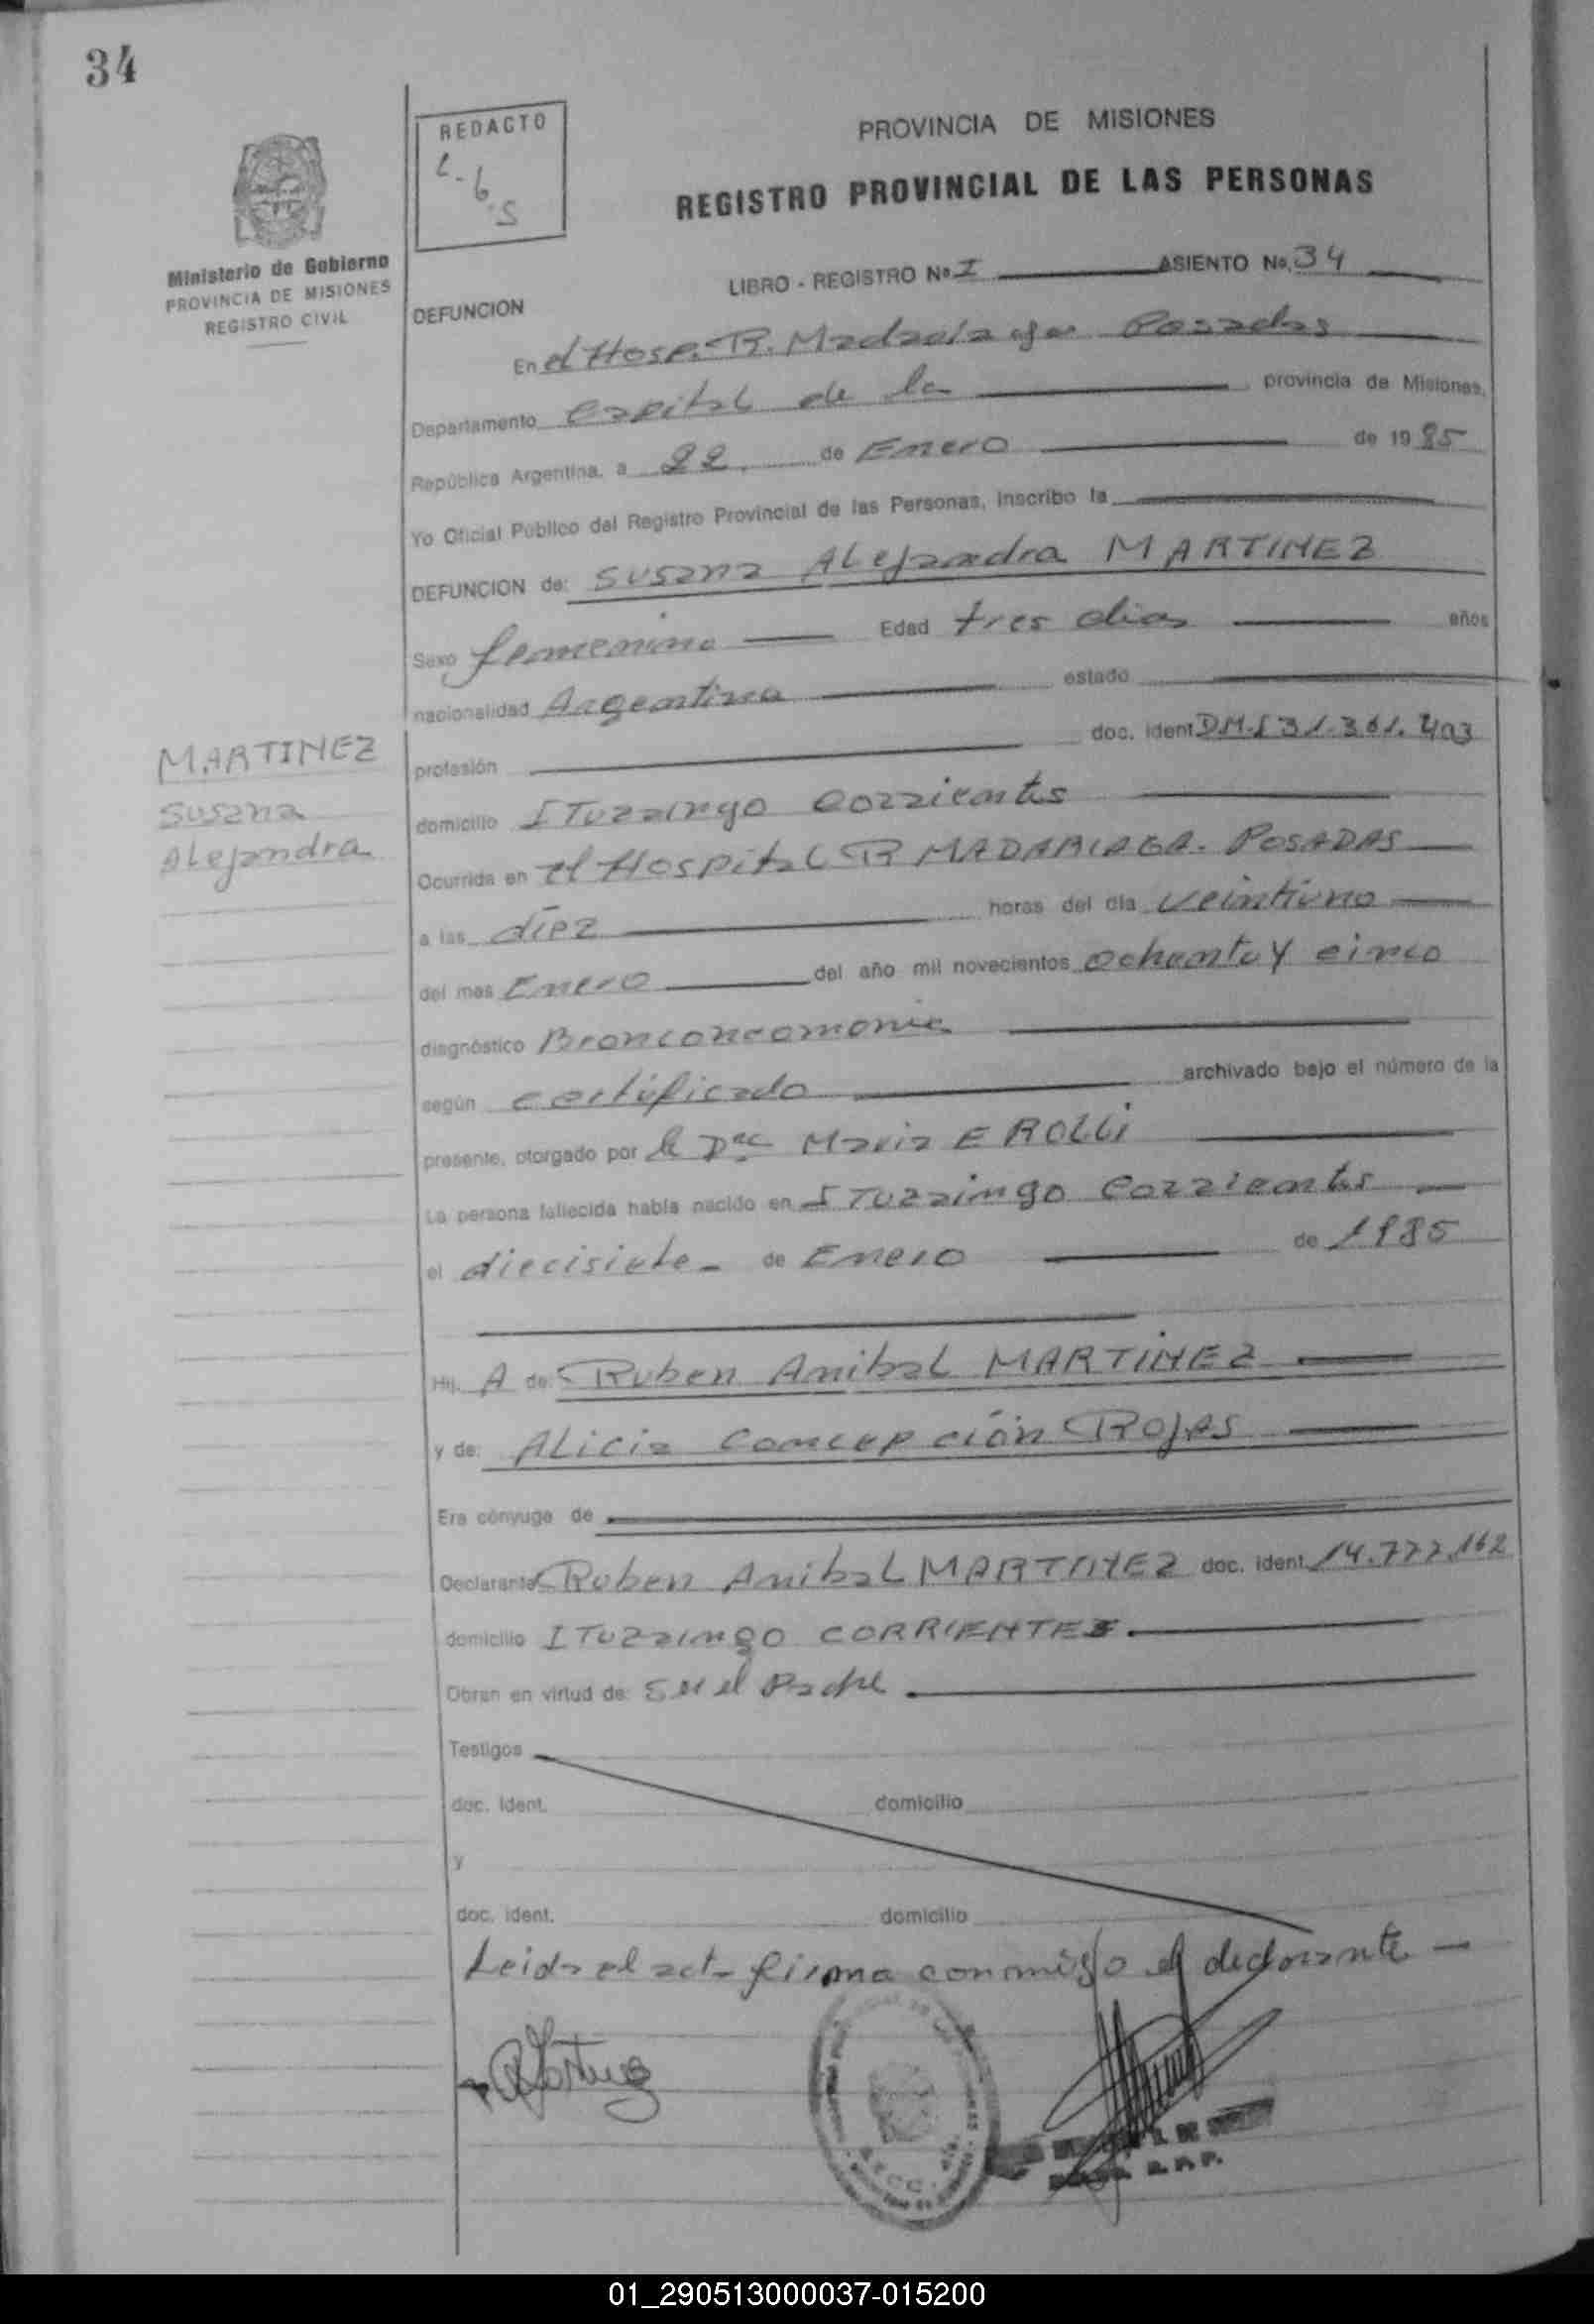 34
REDACTO
L-6.S
PROVINCIA DE MISIONES
REGISTRO PROVINCIAL DE LAS PERSONAS
Ministerio de Gobierno
PROVINCIA DE MISIONES
REGISTRO CIVIL
LIBRO - REGISTRO No I ASIENTO No. 34
DEFUNCION
En el Hosp. R. Madariaga Posadas
Departamento Capital de la provincia de Misiones,
República Argentina, a 22 de Enero de 1985
Yo Oficial Público del Registro Provincial de las Personas, inscribo la
DEFUNCION de: Susana Alejandra MARTINEZ
Sexo femenino Edad tres dias años
nacionalidad Argentina estado
MARTINEZ
Susana
Alejandra
profesión doc. ident DM-I 31.301.403
domicilio ITuzaingo Corrientes
Ocurrida en el Hospital R MADARIAGA. POSADAS
a las diez horas del día veintiuno
del mes Enero del año mil novecientos ochenta y cinco
diagnóstico Bronconeomonia
según certificado archivado bajo el número de la
presente, otorgado por la Dra Maria E ROLLi
La persona fallecida había nacido en ITuzaingo Corrientes
el diecisiete de Enero de 1985
Hij A de: Ruben Anibal MARTINEZ
y de: Alicia Concepción Rojas
Era cónyuge de
Declarante Ruben Anibal MARTINEZ doc. ident. 14.777.162
domicilio ITuzaingo CORRIENTES.
Obran en virtud de: ser el Padre
Testigos
doc. ident. domicilio
y
doc. ident. domicilio
Leida el acta firma conmigo el declarante
01_290513000037-015200